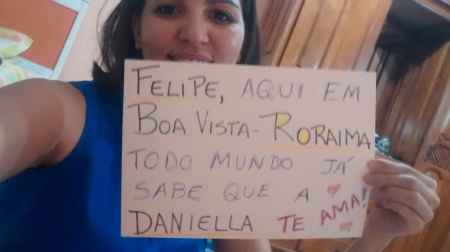 FELIPE, AQUI EM
BOA VISTA - RORAIMA
TODO MUNDO JÁ
SABE QUE A
DANIELLA TE AMA!